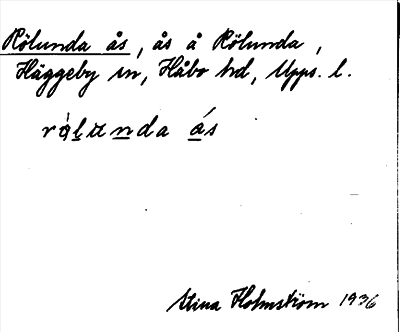 Rölunda ås, ås å Rölunda,
Häggeby sn, Håbo hd, Upps. l.
rö̀lunda ás
Stina Holmström 1936